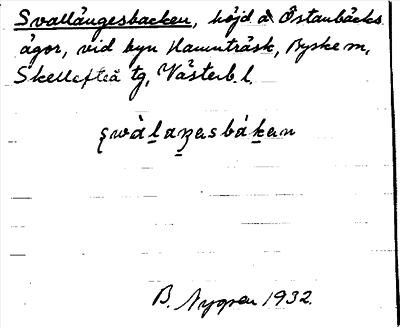 Svallångesbacken, höjd å Östanbäcks
ägor, vid byn Hamnträsk, Byske m,
Skellefteå tg, Västerb. l.
swàlaŋasbákan
B. Nygren 1932.